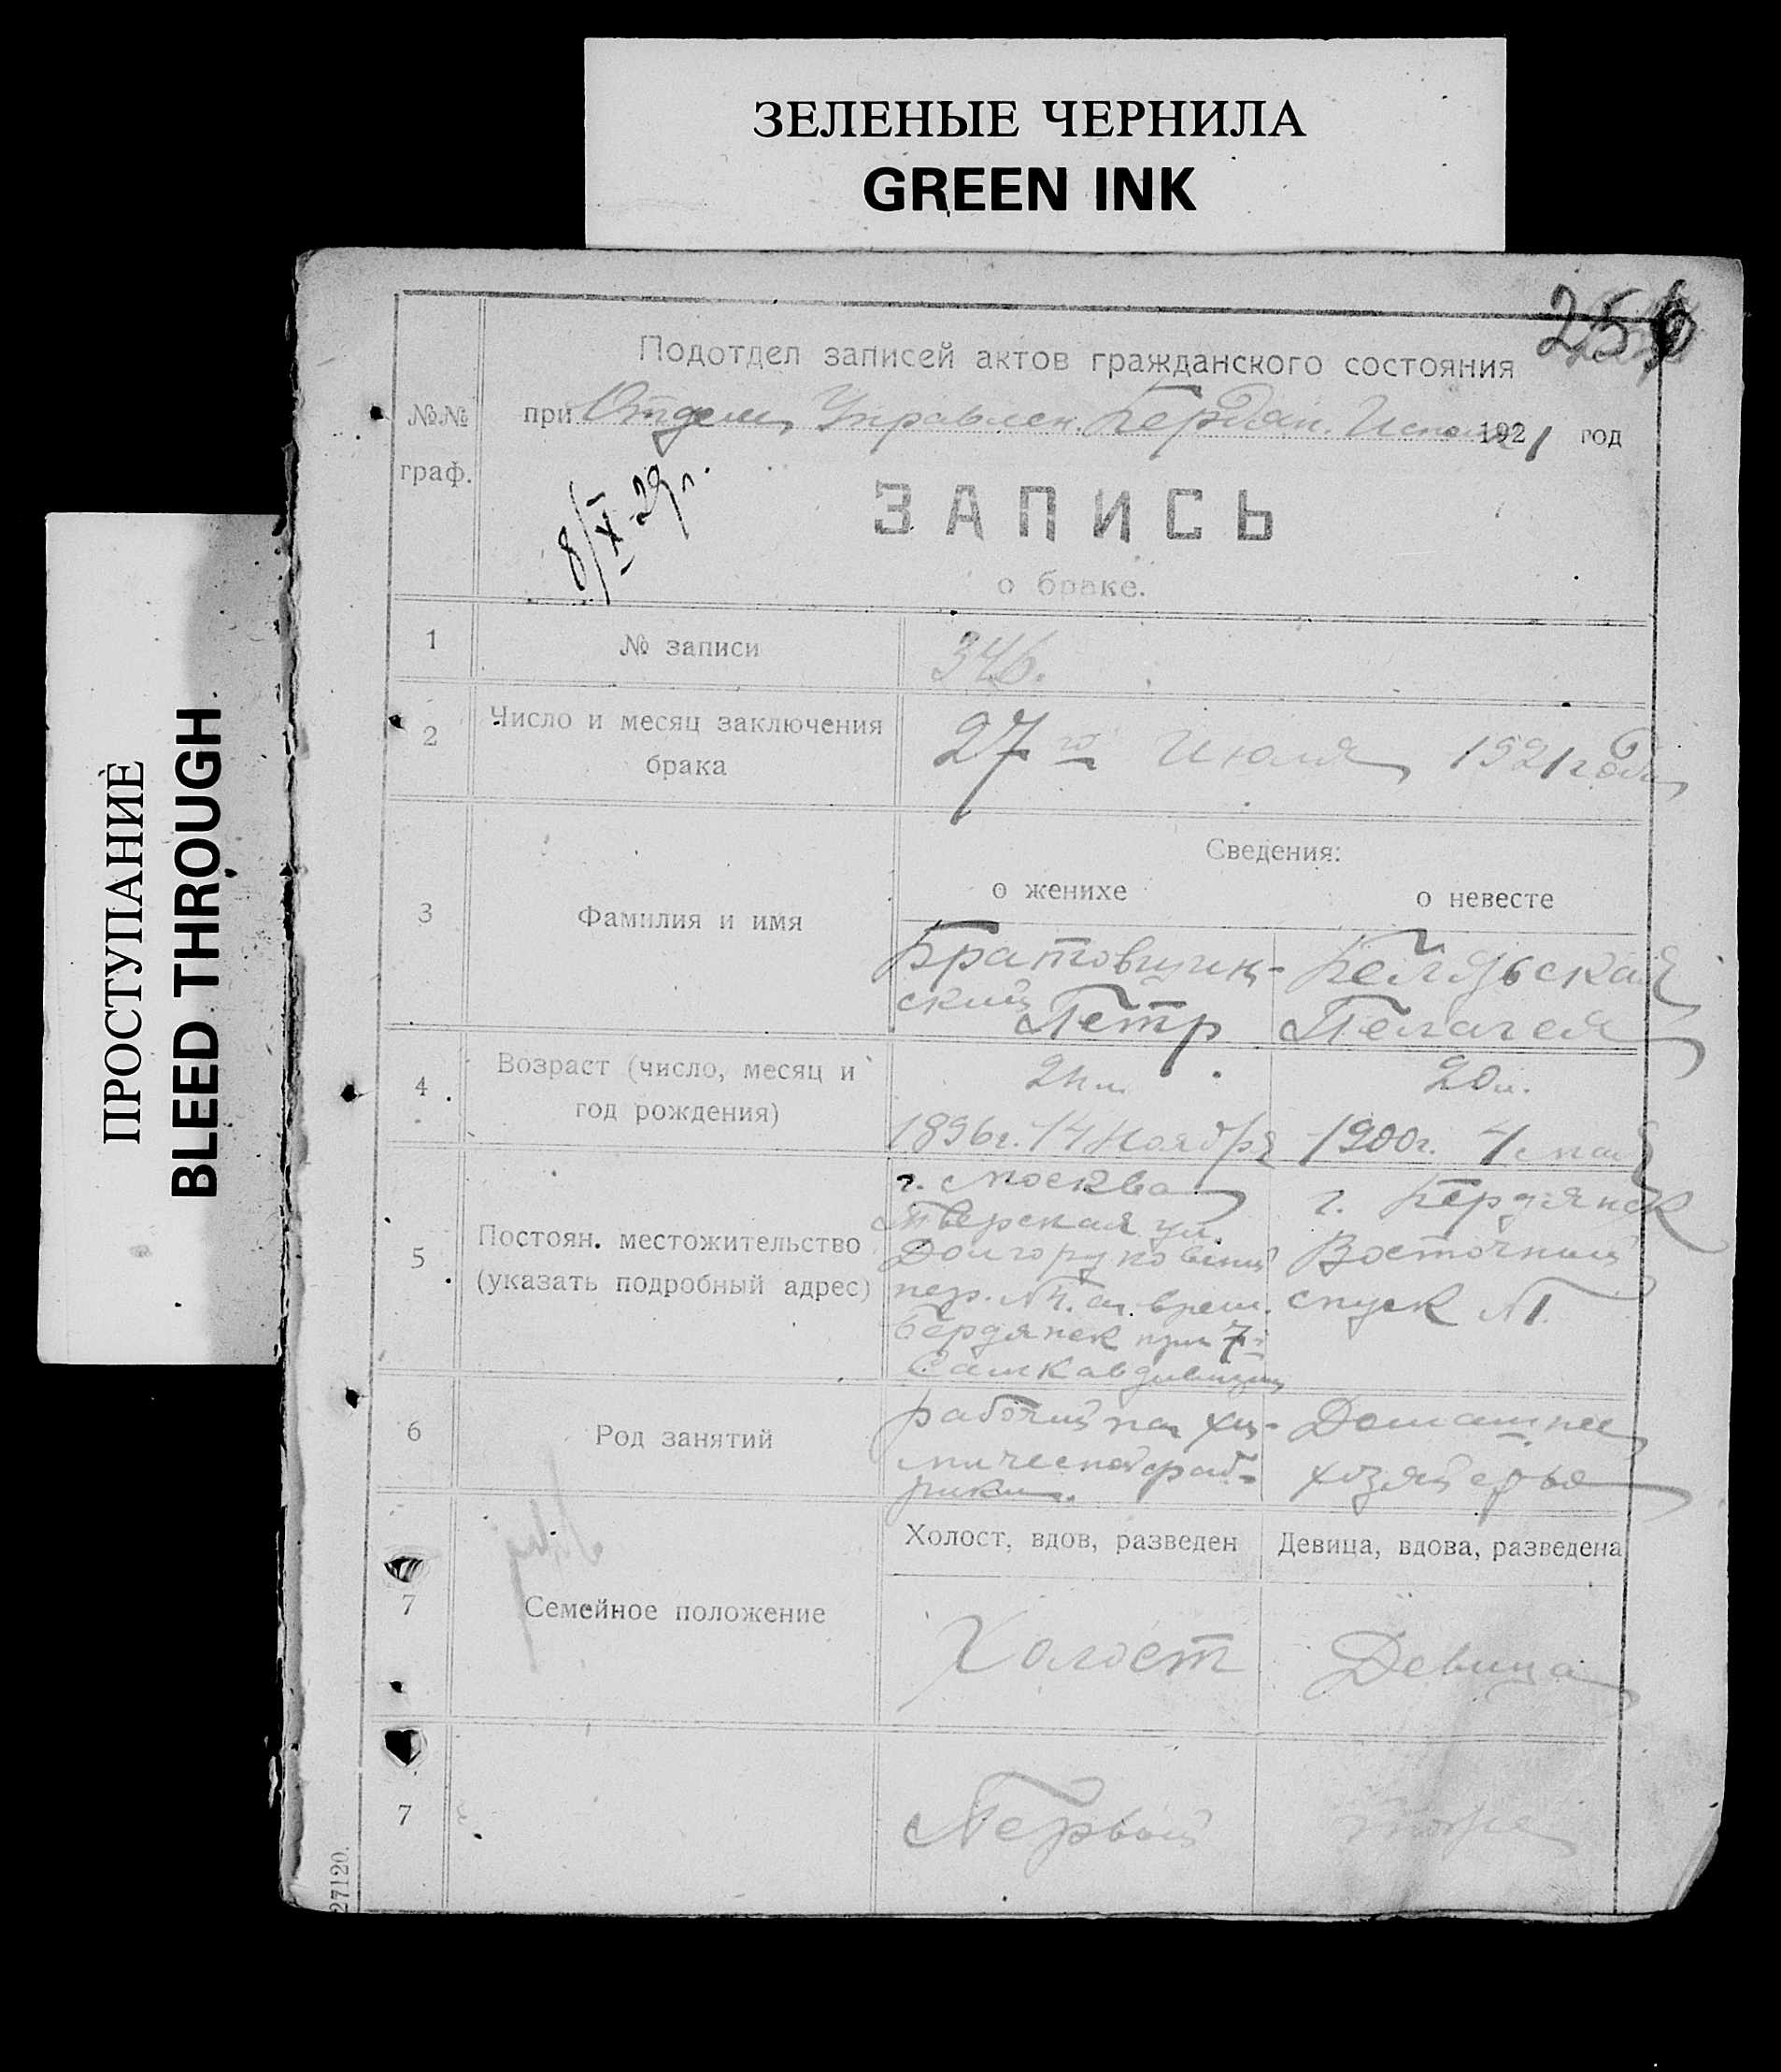 ЗЕЛЕНЫЕ ЧЕРНИЛА
GREEN INK
ПРОСТУПАНИЕ
BLEED THROUGH
256
Подотдел записей актов гражданского состояния
№№ граф.
при Отделе Управлен. Бердян. Исполк 1921 год
8/XI-29г.
ЗАПИСЬ
о браке.
1 № записи 346.
2 Число и месяц заключения
брака
27го Июля 1921 года
Сведения:
о женихе о невесте
3 Фамилия и имя
Братовщин-
ский Петр
Пелагея
4 Возраст (число, месяц и
год рождения)
24 л.
1896г. 14 Ноября
20 л.
1900г. 4 мая
5 Постоян. местожительство
(указать подробный адрес)
г. Москва
Тверская ул.
Долгоруковский
пер. №4. врем.
Бердянск при 7й
Самкавдивизии
г. Бердянск
Восточный
спуск №1.
6 Род занятий
рабочий на хи-
мической фаб-
рики.
Домашнее
хозяйство
7 Семейное положение
Холост, вдов, разведен Девица, вдова, разведена
Холост Девица
7
Первый тоже
27120.